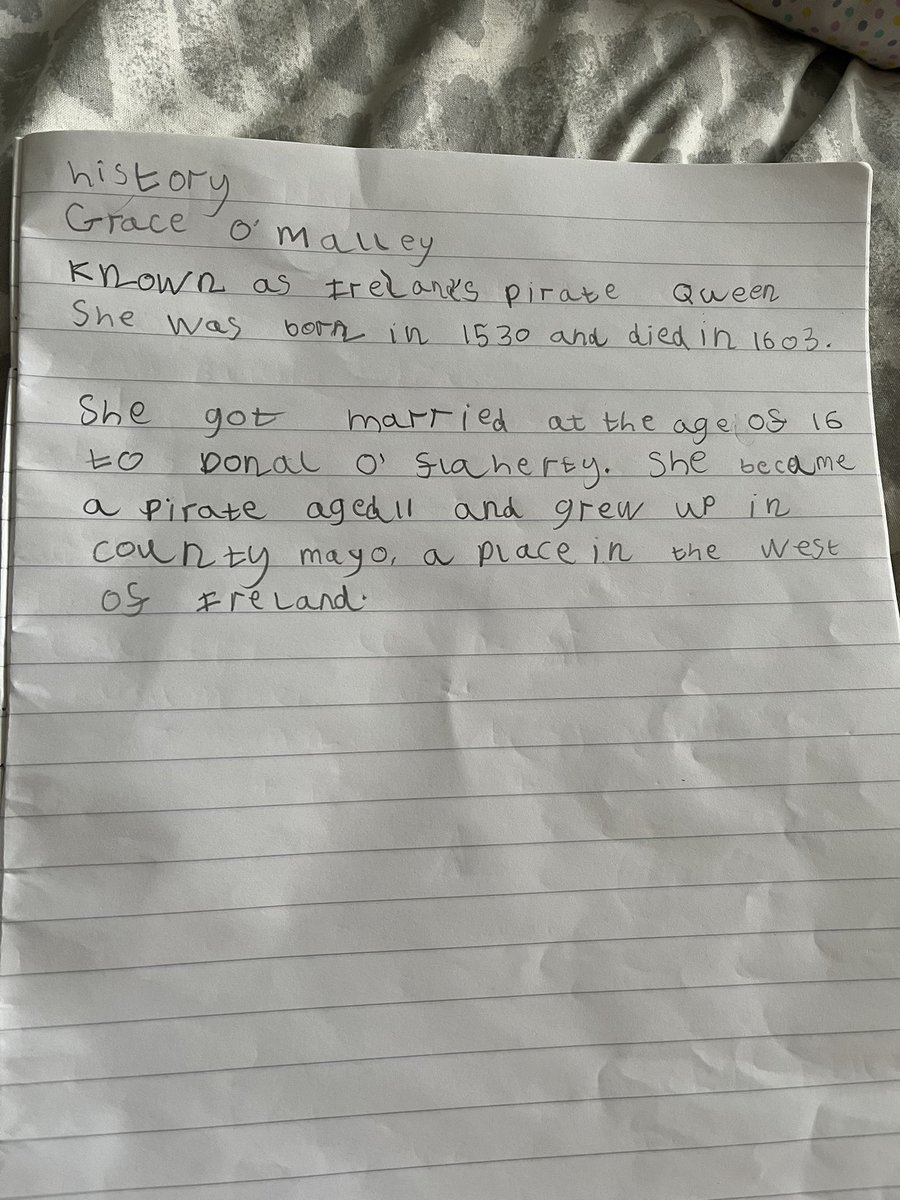 history
Grace O'Malley
Known as Ireland's pirate Qween
She was born in 1530 and died in 1603.
She got married at the age of 16
to Donal O'flaherty. She became
a pirate aged 11 and grew up in
county mayo, a place in the west
of Ireland.